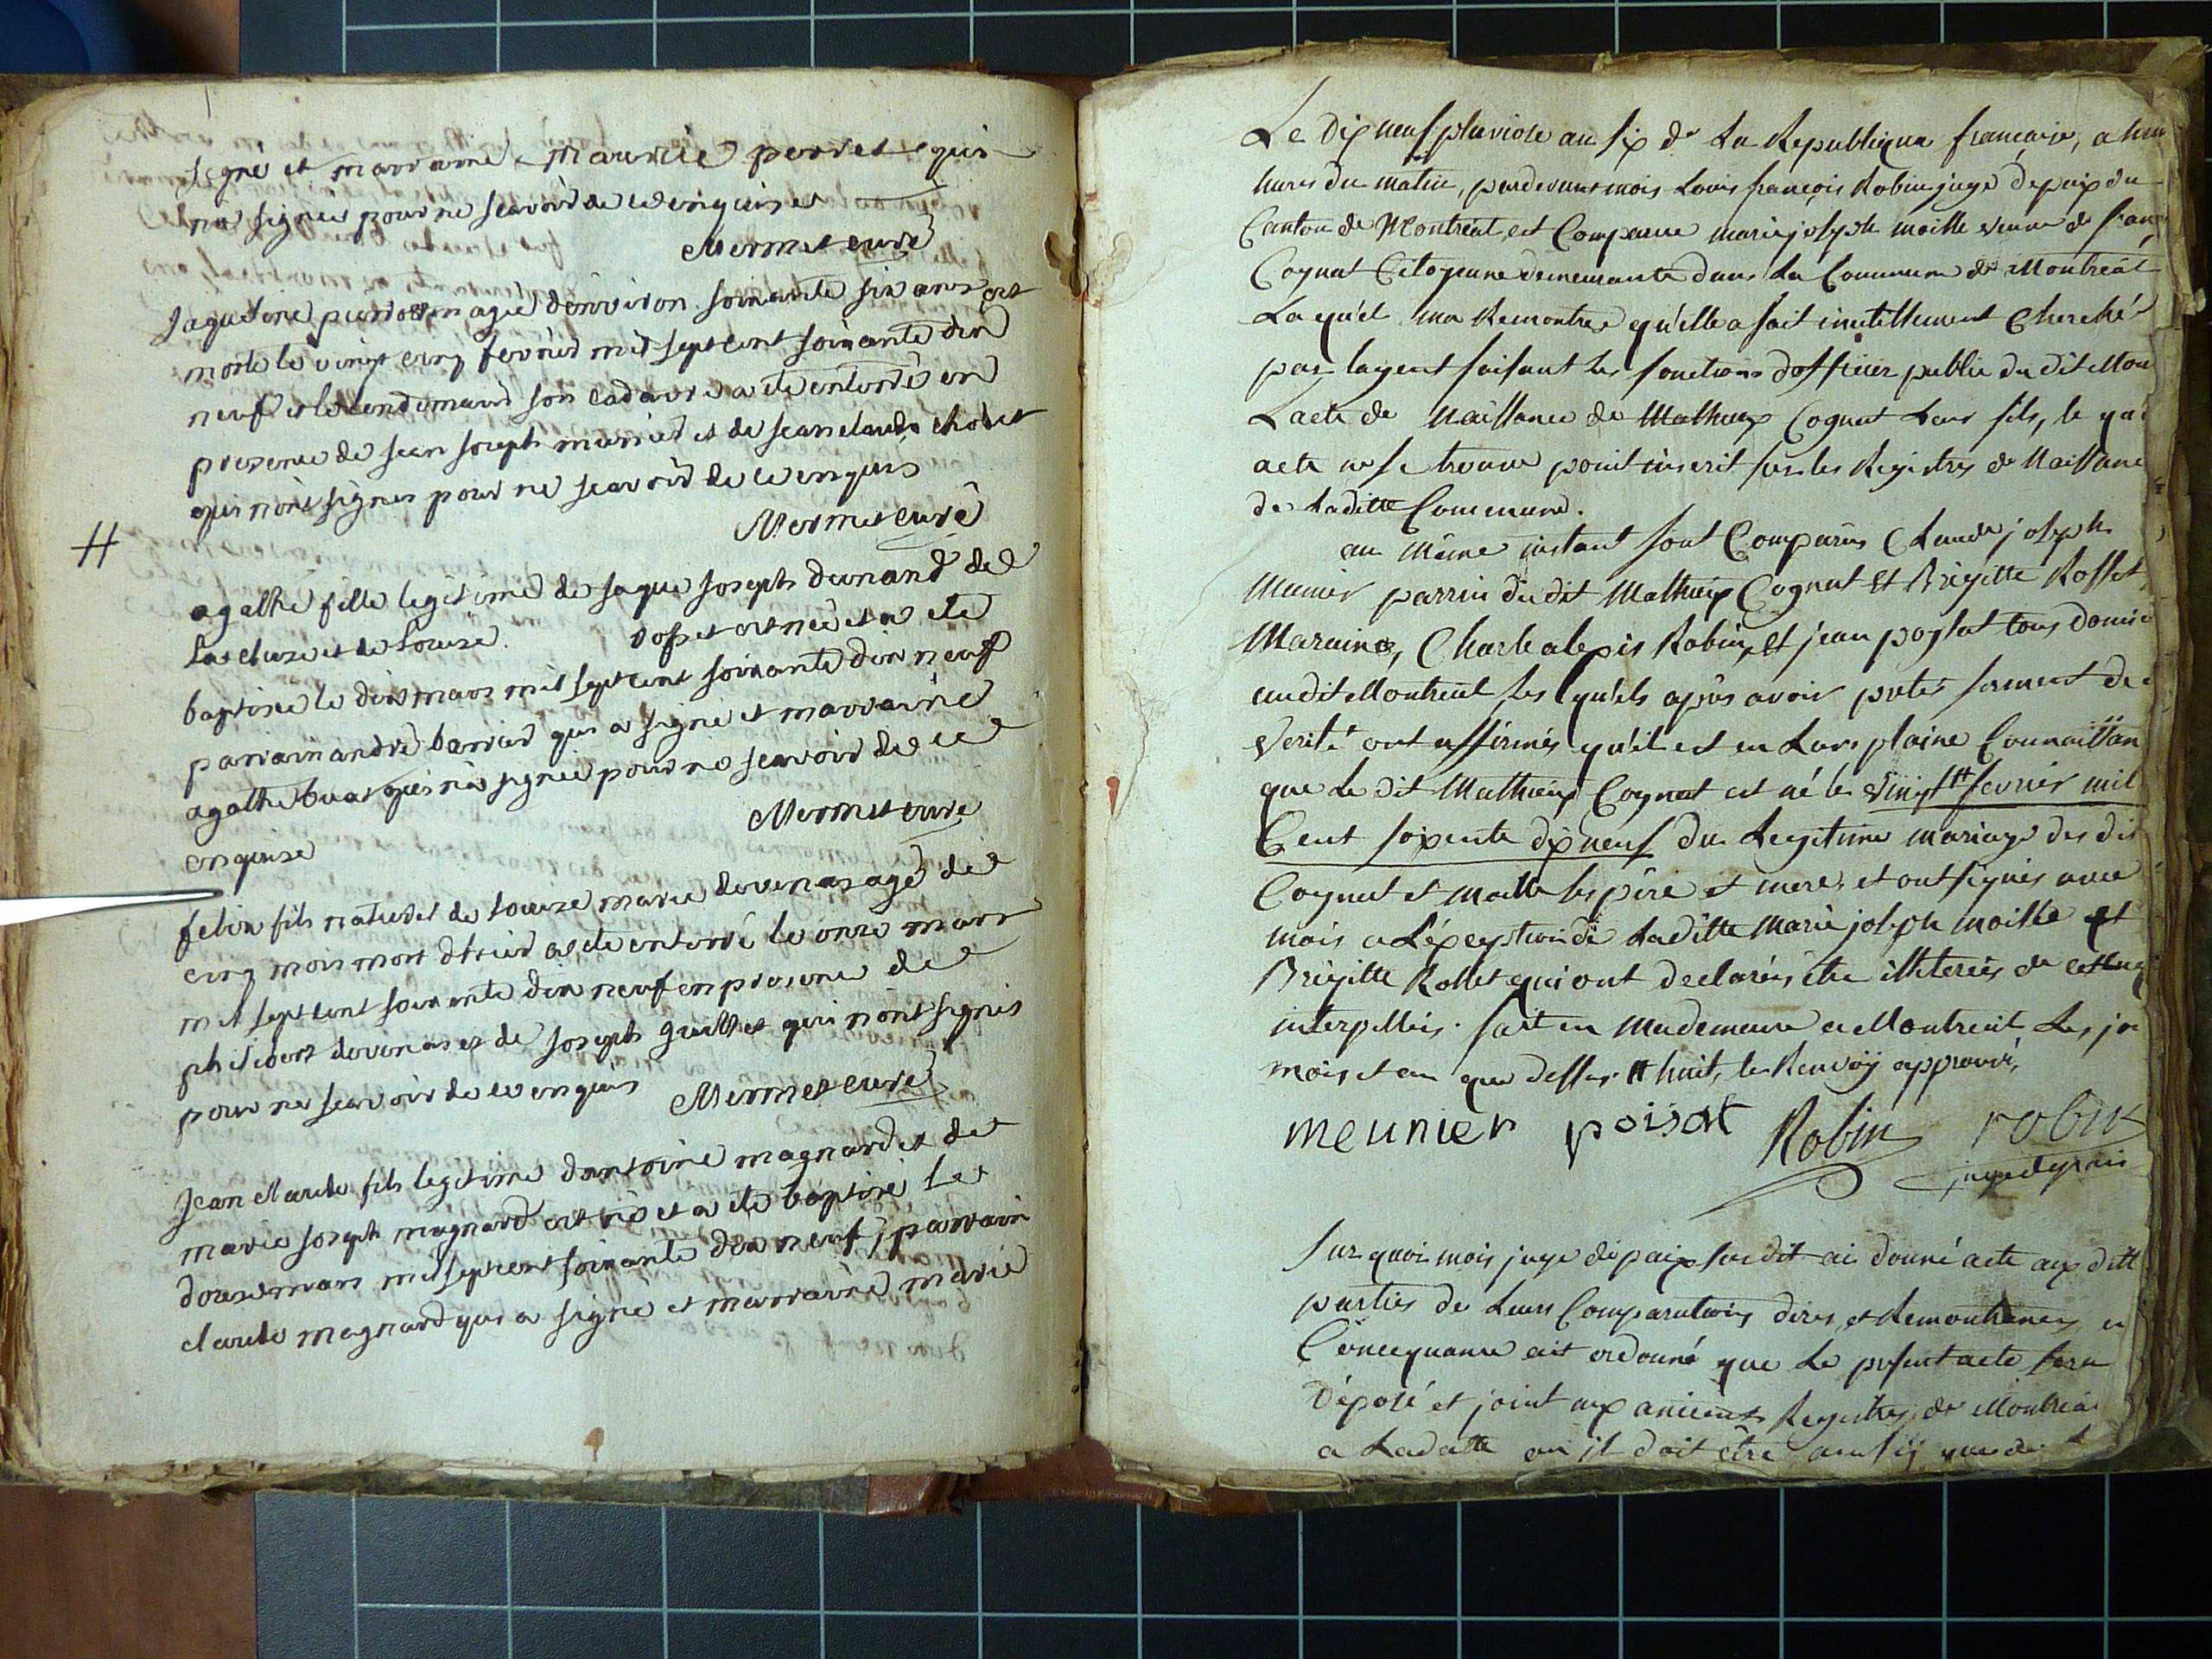 signé et marraine Maurice perret qui
na signée pour ne scavoir de ce enquise
Mermet curé
Jaqueline agé denviron soixante six ans est
morte le vingt cinq fevrier mil sept cent soixante dix
neuf et le lendemain son cadavre a ete enterré en
presence de jean joseph munier et de jean claude
qui nont signes pour ne scavoir de ce enquis
Mermet curé
#
agathe fille legitime de jaque joseph dunand de
la cluse et de louise rosset est née et a ete
baptisée le dix mars mil sept cent soixante dix neuf
parrain andré barrier qui a signé et marraine
agathe buat qui na signée pour ne scavoir de ce
Mermet curé
enquise
felix fils naturel de louise marie devenas agé de
cinq mois mort a ete enterré le onze mars
mil sept cent soixante dix neuf en presence de
philibert devenas et de joseph guillet qui nont signés
pour ne scavoir de ce enquis Mermet curé
Jean claude fils legitime dantoine magnard et de
marie joseph magnard est né et a ete baptisé le
douse mars mil sept cent soixante dix neuf, parrain
claude magnard qui a signé et marraine marie
Le dix neuf pluviose an six de La Republique francaise, a
hures du matin, pardevant mois Louis françois Robin juge de paix du
Canton de Montréal, est Comparue marie joseph moille veuve de
Cognat Citoyenne demeurante dans La Commune de Montréal
La qu'el ma Remontrer qu'elle a fait inutillement Cherché
par lagent faisant les fonctions dofficier public du dit
Lacte de Naissance de Mathieux Cognat Leur fils, le
acte ne se trouve point inscrit sur les Registres de
de Laditte Commune.
au même instant sont Comparus Claude joseph
Munier parrin dudit Mathieux Cognat Et Brigitte Rosset
Maraine, Charle alexis Robin, Et jean poysat tous
audit Montreal, Les qu'els après avoir pretés serment de
verité ont affirmés qu'il est en Leurs plaine
que Le dit Mathieux Cognat est né le vingt # fevrier mil
Cent soixente dix neuf du Legitime mariage des
Cognat et moille les père et mere, et ont signés avec
mois a L'éxception de Laditte Marie joseph moille et
Brigitte Rosset qui ont declarées être illiterées de
interpellées. fait en Mademeure a Montreal Les
mois et an que dessus. # huit, le Renvoÿ approuvé,
meunier poisat Robin robin
juge de paix
Sur quoi mois juge de paix susdit ai donné acte aux
parties de Leurs Comparutions dires, et Remontrances
Concequance ait ordonné que Le present acte sera
Déposé et joint aux anciens Registres de
a Ladatte ou il doit être